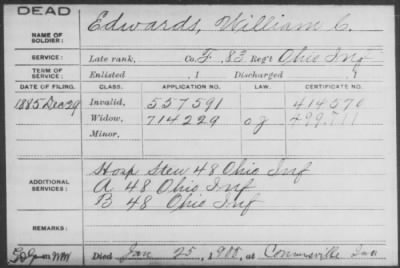 DEAD
NAME OF SOLDIER: Edwards, William C.
SERVICE: Late rank, Co. F, 83 Reg't Ohio Inf
TERM OF SERVICE: Enlisted , 1 Discharged , 1
DATE OF FILING. CLASS. APPLICATION NO. LAW. CERTIFICATE NO.
1885 Dec 29 Invalid, 557591 414570
Widow, 714229 499,711
Minor,
ADDITIONAL SERVICES:
Hosp Stew 48 Ohio Inf
A 48 Ohio Inf
B 48 Ohio Inf
REMARKS:
Died Jan 25, 1900, at Connersville Ind